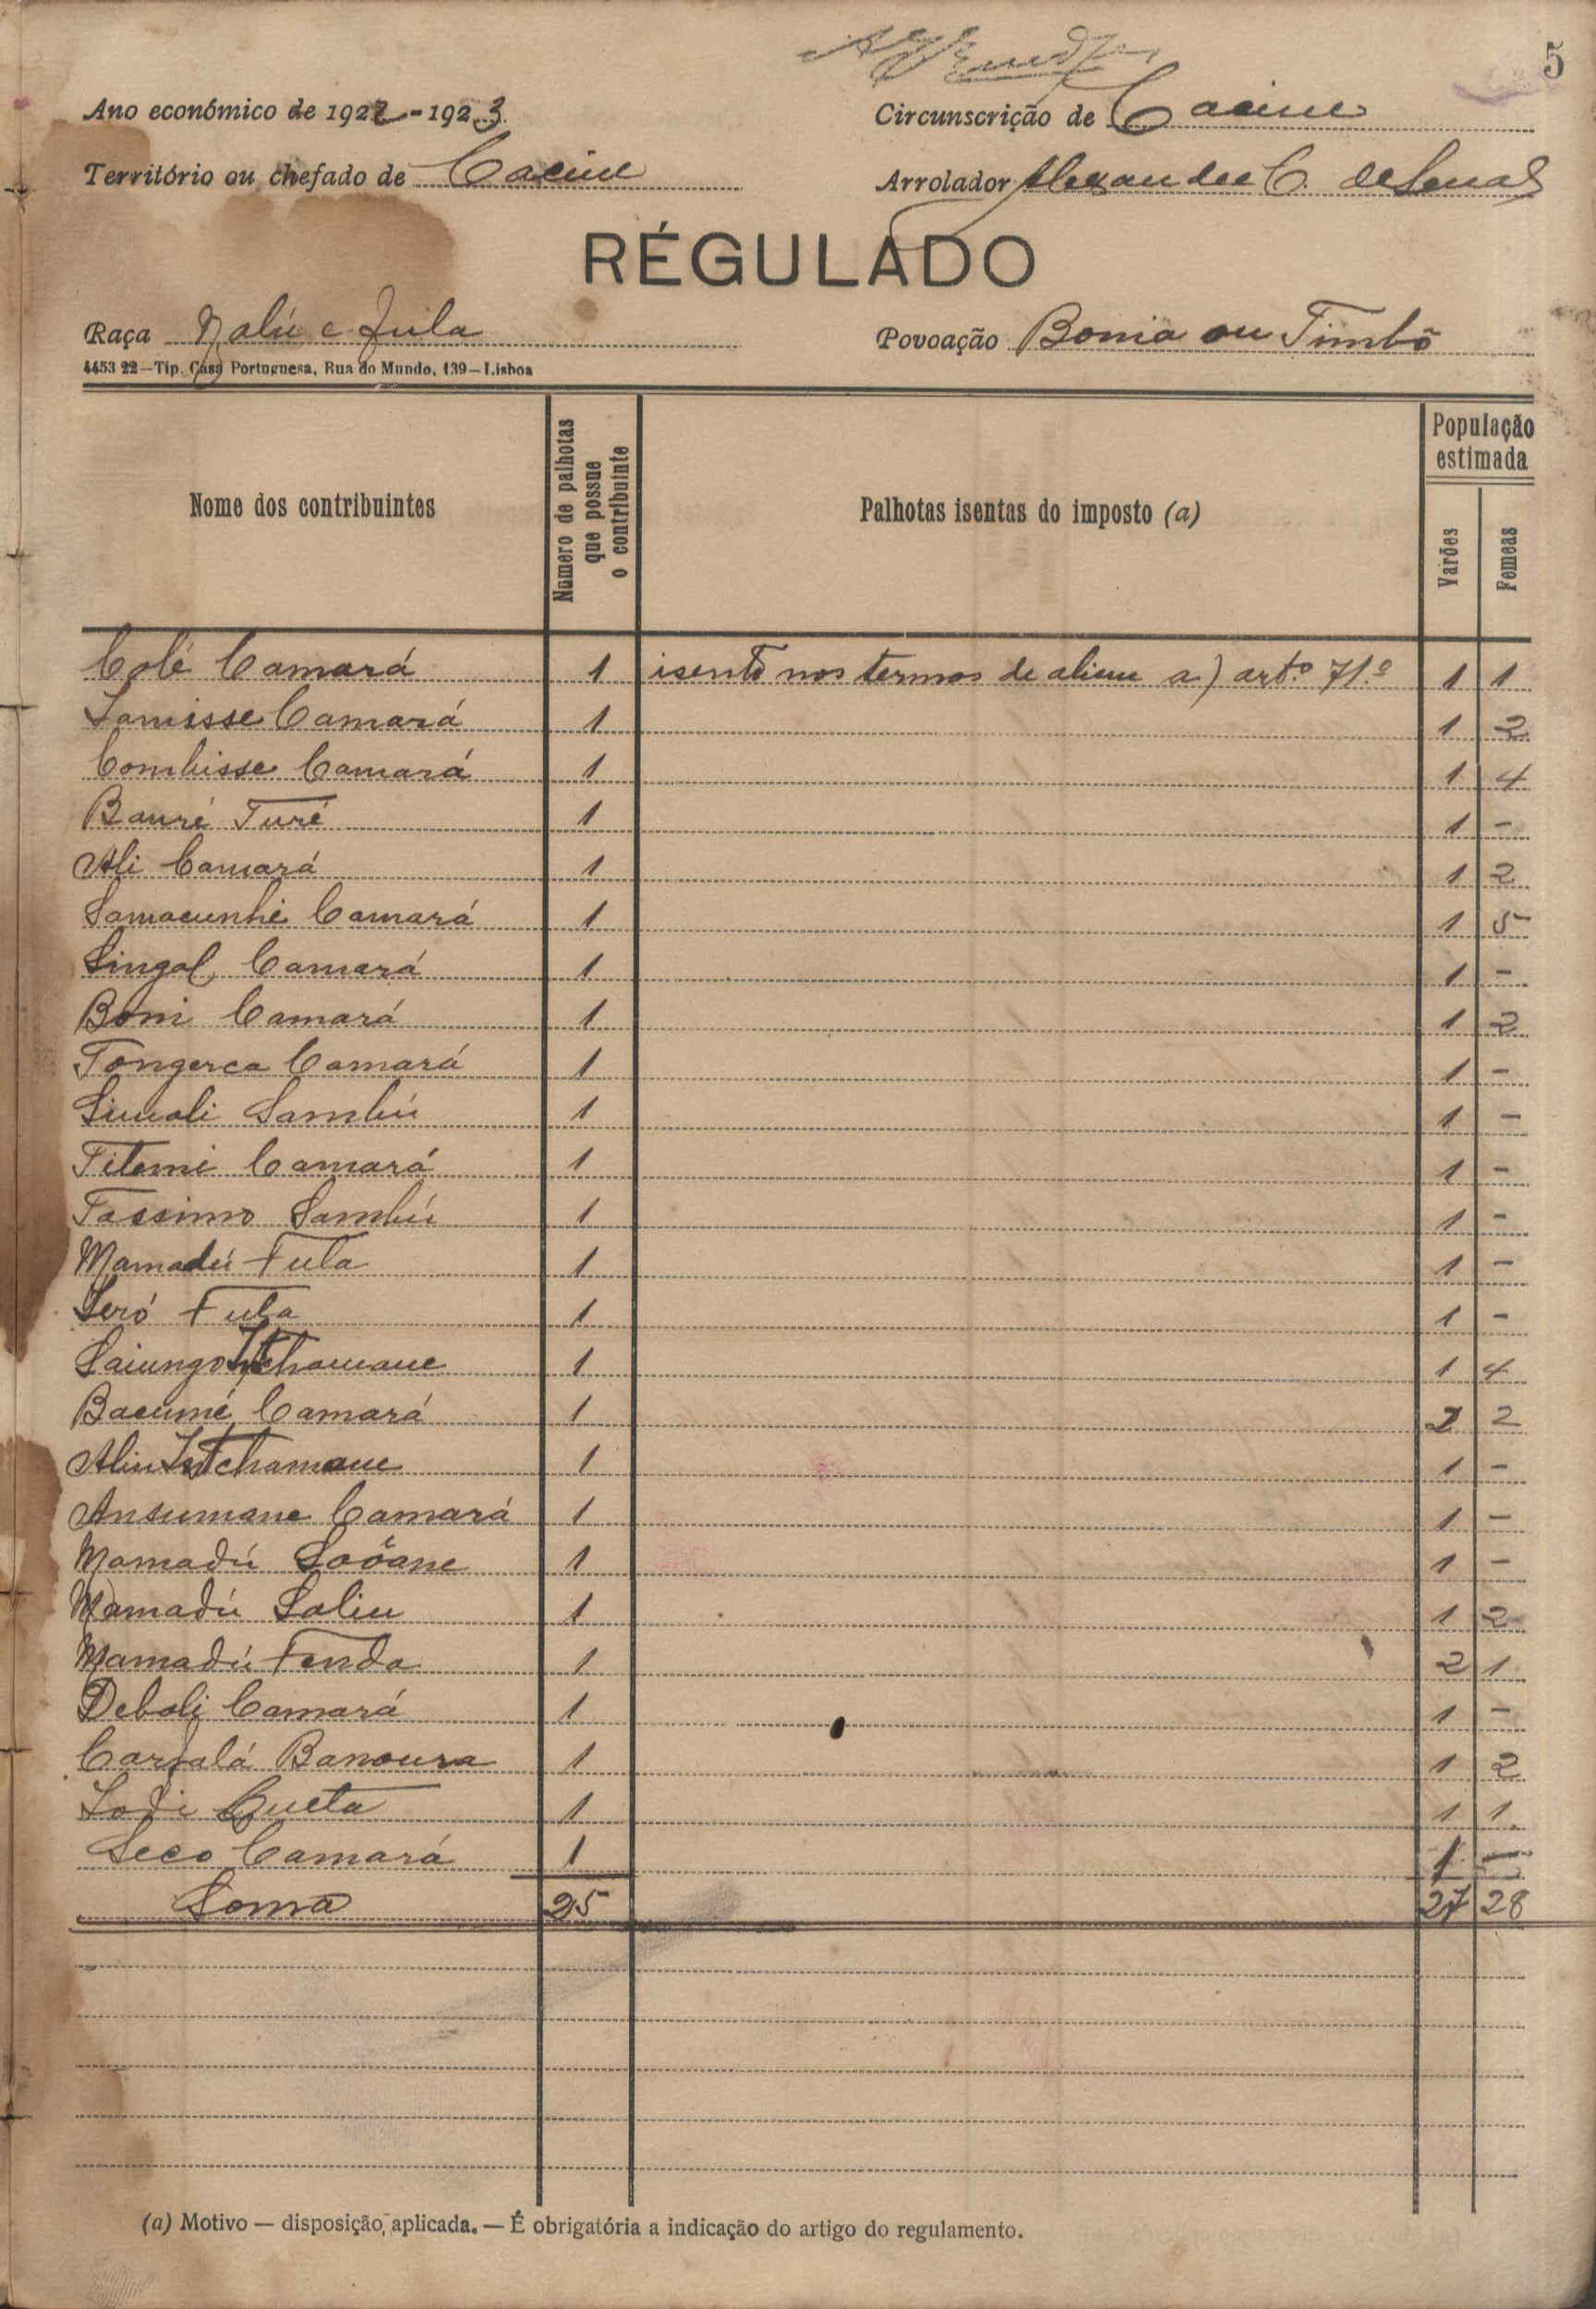 5
Ano económico de 1922-1923. Circunscrição de Cacine
Território ou chefado de Cacine Arrolador Alexandre C. de Sena
RÉGULADO
Raça Nalú e fula Povoação Bonia ou Timbó
4453 22—Tip. Casa Portuguesa, Rua do Mundo, 139—Lisboa
Nome dos contribuintes Número de palhotas que possue o contribuinte Palhotas isentas do imposto (a) População estimada Varões Femeas
Colé Camará 1 isento nos termos de alinea a) artº 71.º 1 1
Lamisse Camará 1 1 2
Combisse Camará 1 1 4
Banré Turé 1 1 -
Ali Camará 1 1 2
Samacunhé Camará 1 1 5
Singol Camará 1 1 -
Boni Camará 1 1 2
Tongerca Camará 1 1 -
Simali Sambú 1 1 -
Titemi Camará 1 1 -
Tassimo Sambú 1 1 -
Mamadú Fula 1 1 -
Seró Fula 1 1 -
1 1 4
Bacumé Camará 1 2 2
1 1 -
Ansumane Camará 1 1 -
Mamadú 1 1 -
Mamadú Saliu 1 1 2
Mamadú Fenda 1 2 1
Deboli Camará 1 1 -
Carfalá Banoura 1 1 2
Lodi Queta 1 1 1
Seco Camará 1 1
Soma 25 27 28
(a) Motivo — disposição, aplicada. — É obrigatória a indicação do artigo do regulamento.